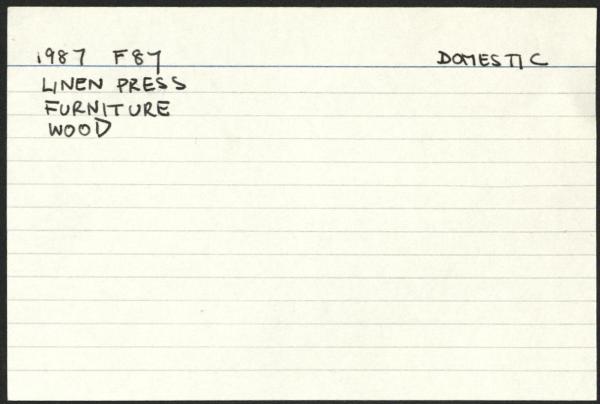 1987 F87 DOMESTIC
LINEN PRESS
FURNITURE
WOOD